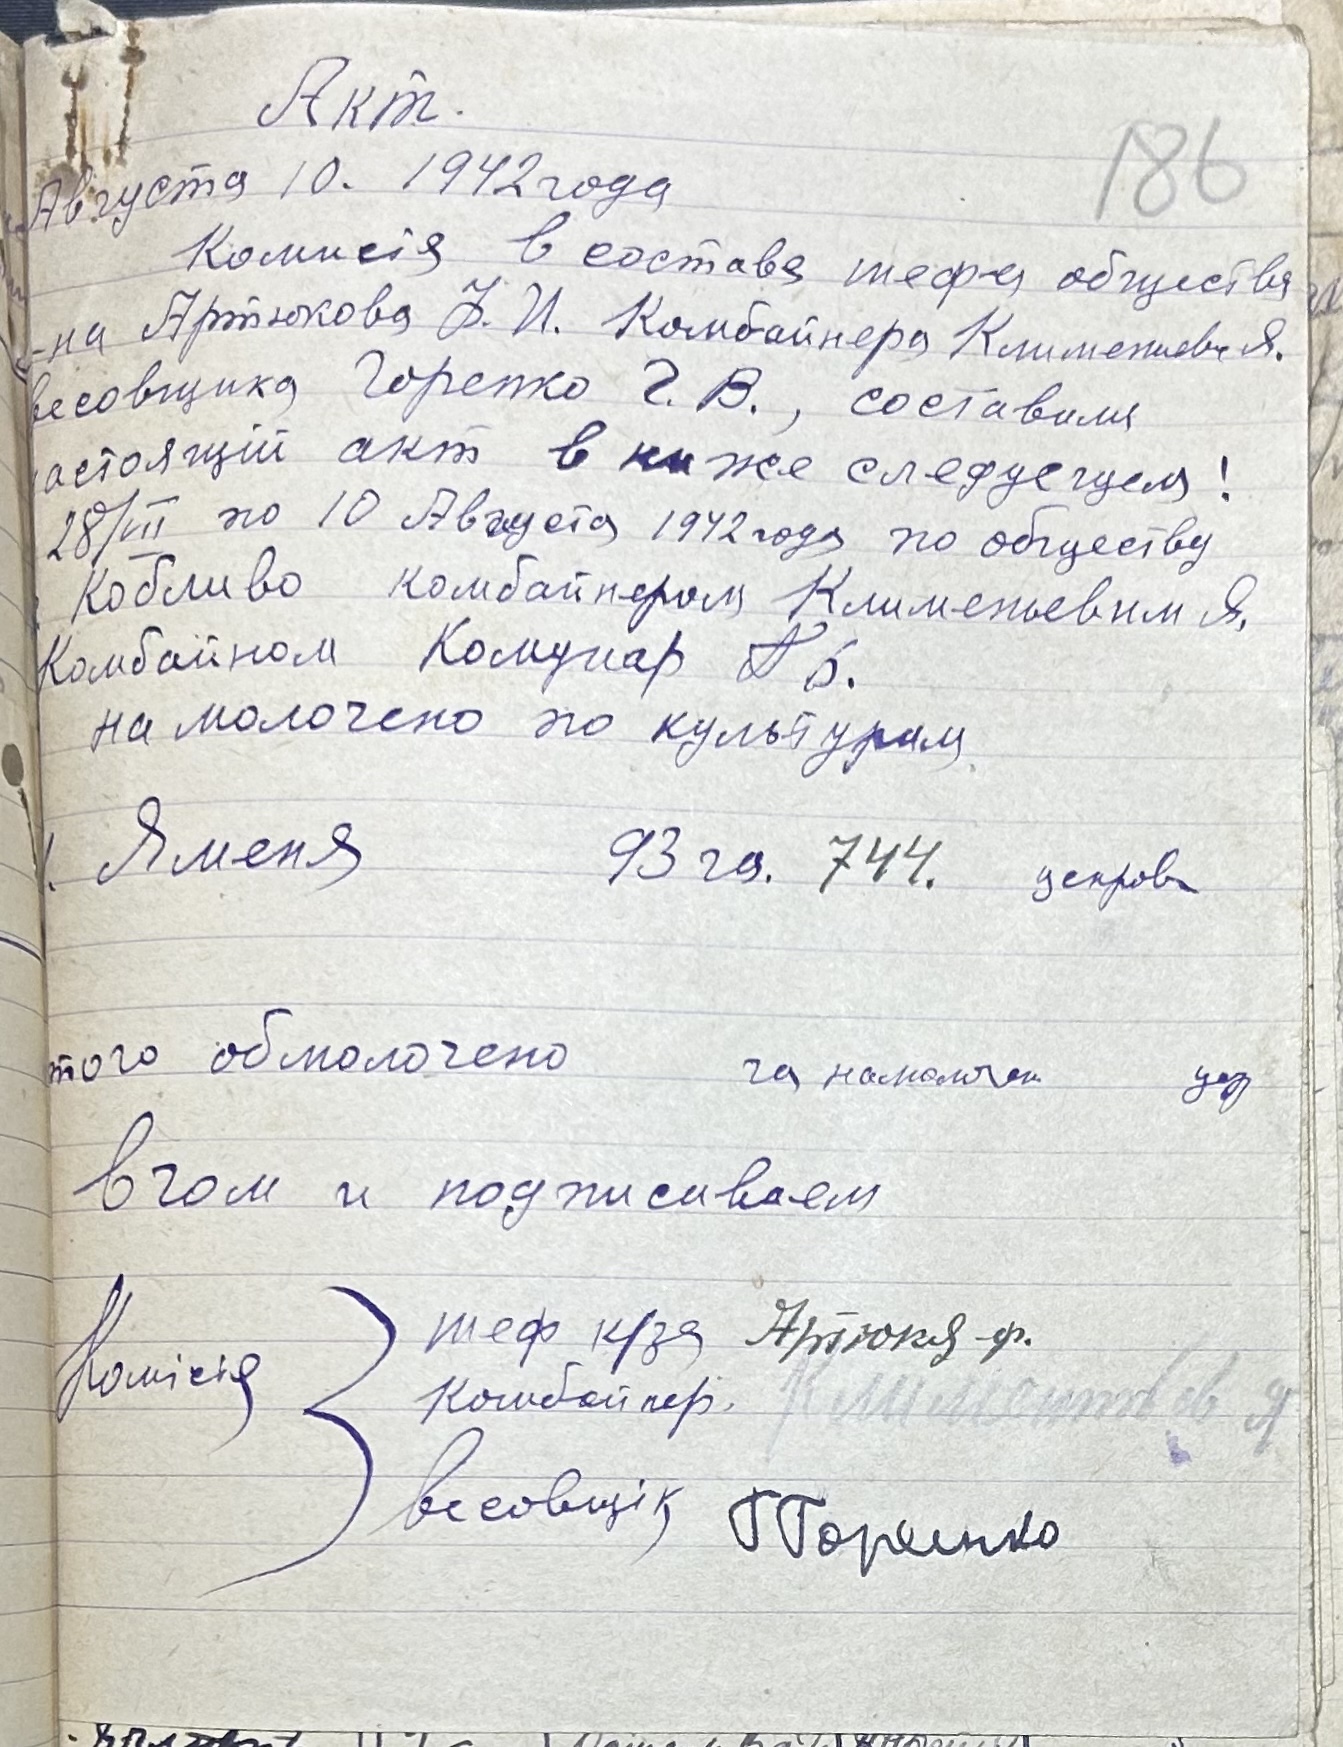 Акт.
186
Августа 10. 1942 года
Комисія в состава шефа общества
-на Артюкова И. Комбайнера Я.
весовщика Горенко Г. В., составили
настоящій акт в ниже следующем!
28/VII по 10 Августа 1942 года по обществу
Кобливо комбайнером Клименьевим Я.
Комбайном Комунар № 6.
намолочено по культурам
1. Яменя 93 га. 744. центров
того обмолочено га намолочен цер
в чом и подписиваем
Комісія шеф к/за Артюка ф.
Комбайнер. Климентьев Я
весовщік Г Горенко